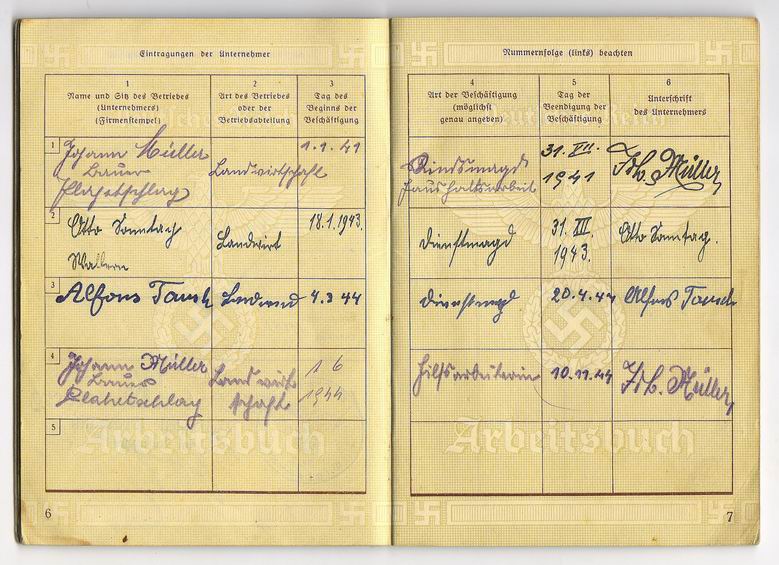 Eintragungen der Unternehmer
1
Name und Sitz des Betriebes
(Unternehmers)
(Firmenstempel)
2
Art des Betriebes
oder der
Betriebsabteilung
3
Tag des
Beginns der
Beschäftigung
1
Johann Müller
Bauer
1.1.41
Landwirtschaft
2
Otto Sonntag
Wallern
Landwirt
18.1.1943.
3
Alfons
4.3 44
4
Johann Müller
Bauer
Landwirt
schaft
1 6
1944
5
Arbeitsbuch
6
Nummernfolge (links) beachten
4
Art der Beschäftigung
(möglichst
genau angeben)
5
Tag der
Beendigung der
Beschäftigung
6
Unterschrift
des Unternehmers
Haushaltsarbeit
31. VII.
1941
Joh. Müller
Dienstmagd
31. III.
1943.
Otto Sonntag.
Dienstmagd
20.4.44
Alfons
Hilfsarbeiterin
10.11.44
Joh. Müller
Arbeitsbuch
7